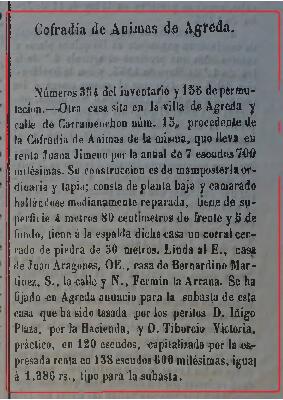 Cofradia de Animas de Agreda.
Números 354 del inventario y 156 de permu-
tacion.—Otra casa sita en la villa de Agreda y
calle de Carramenchon núm. 15, procedente de
la Cofradia de Animas de la misma, que lleva en
renta Juana Jimeno por la anual de 7 escudos 700
milésimas. Su construccion es de mampostería or-
dinaria y tapia; consta de planta baja y camarado
hallándose medianamente reparada, tiene de su-
perficie 4 metros 80 centimetros de frente y 5 de
fondo, tiene á la espalda dicha casa un corral cer-
rado de piedra de 30 metros. Linda al E., casa
de Juan Aragones, OE., casa de Bernardino Mar-
tinez, S., la calle y N., Fermin la Arcana. Se ha
fijado en Agreda anuncio para la subasta de esta
casa que ha sido tasada por los peritos D. Iñigo
Plaza, por la Hacienda, y D. Tiburcio Victoria,
práctico, en 120 escudos, capitalizado por la es-
presada renta en 138 escudos 600 milésimas, igual
á 1.386 rs., tipo para la subasta.